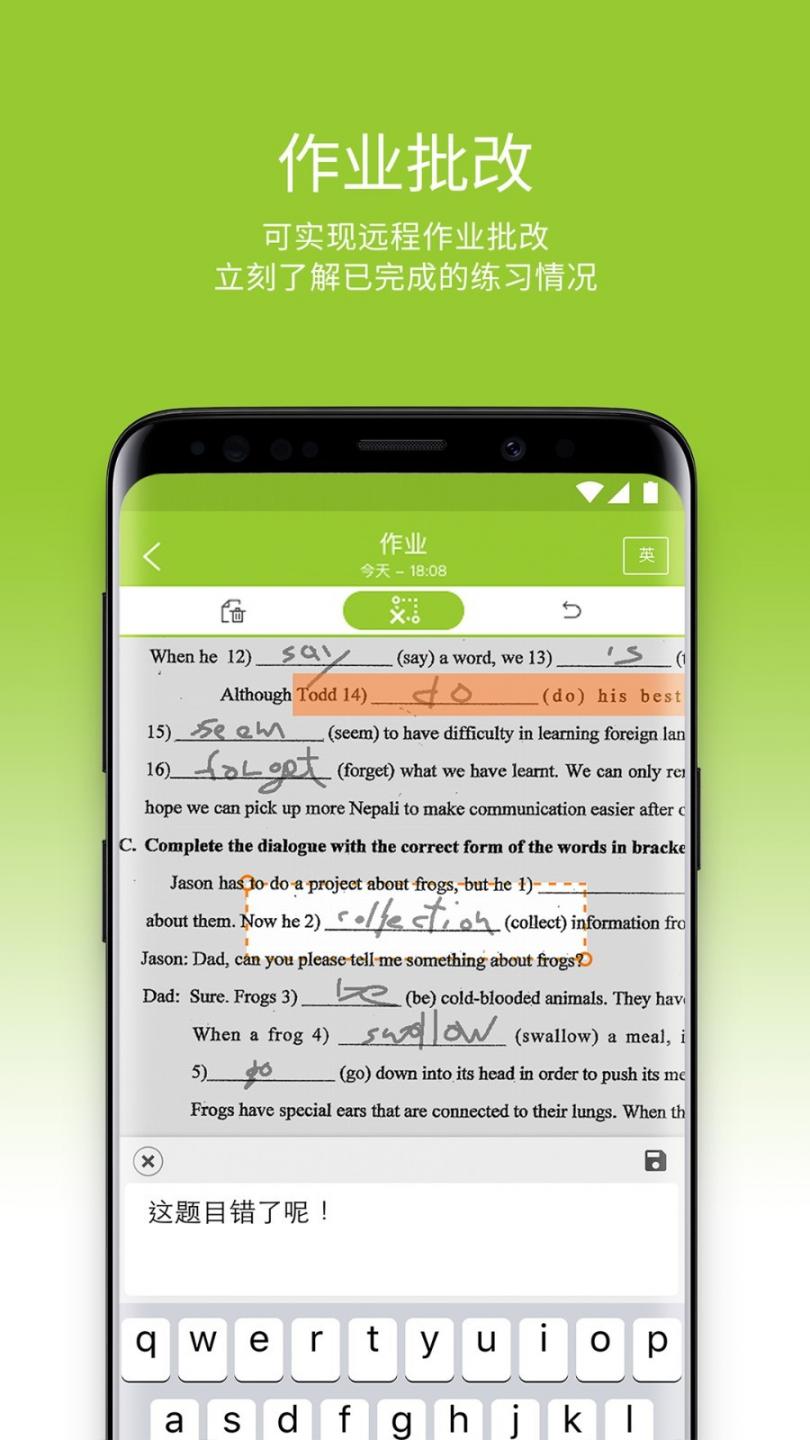 作业批改
可实现远程作业批改
立刻了解已完成的练习情况
作业
英
今天 – 18:08
When he 12) say (say) a word, we 13) 's (t
Although Todd 14) do (do) his best
15) seem (seem) to have difficulty in learning foreign lan
16) forget (forget) what we have learnt. We can only re
hope we can pick up more Nepali to make communication easier after c
C. Complete the dialogue with the correct form of the words in bracke
Jason has to do a project about frogs, but he 1)
about them. Now he 2) collection (collect) information fro
Jason: Dad, can you please tell me something about frogs?
Dad: Sure. Frogs 3) be (be) cold-blooded animals. They hav
When a frog 4) swallow (swallow) a meal, i
5) go (go) down into its head in order to push its me
Frogs have special ears that are connected to their lungs. When th
这题目错了呢！
q w e r t y u i o p
a s d f g h j k l